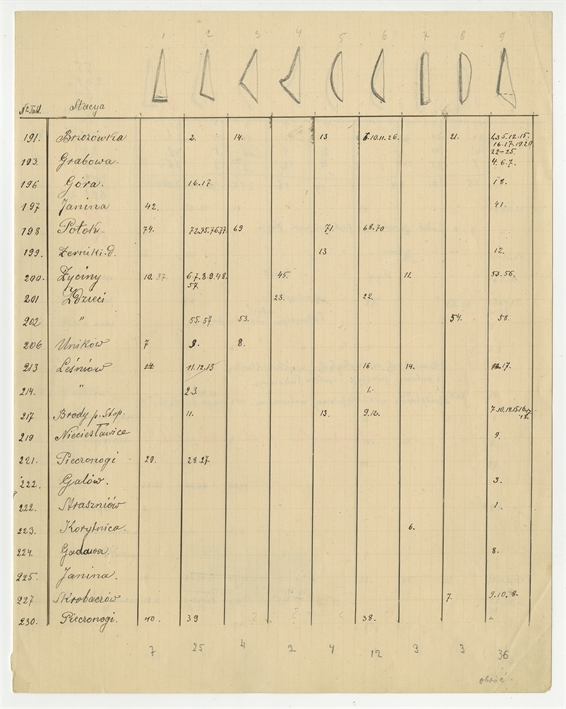 1 2 3 4 5 6 7 8 9
№ Tabl. Stacya
191. Brzozówka 2. 14. 13 6.10.11.26. 21. 4.3.5.12.15.
16.17.19.20
22-25
193. Grabowa. 4.6.7.
196 Góra. 16.17. 18.
197 Janina 42. 41.
198 Potok. 74. 69 71. 68.70
199. Żerniki d. 13 12.
200. Życiny 10.37. 6.7.8.9.48. 45. 11. 53.56.
57.
201 Zdzieci 23. 22.
202 " 55.57 53. 54. 58.
206 Uników 7 9. 8.
213 Leśniów 11.12.15 16 14. 17.
214. " 23. 1.
217. Brody p. Stop. 11. 13. 9.12.
219 Nieciesławice 9.
221. Pieczonogi 29. 28.27.
222. Galów. 3.
222. Straszniów 1.
223. Korytnica. 6.
224. Gadawa. 8.
225. Janina.
227 Skrobaczów 7. 9.10.
230. Pieczonogi. 40. 39 38.
7 25 4 2 4 12 3 3 36